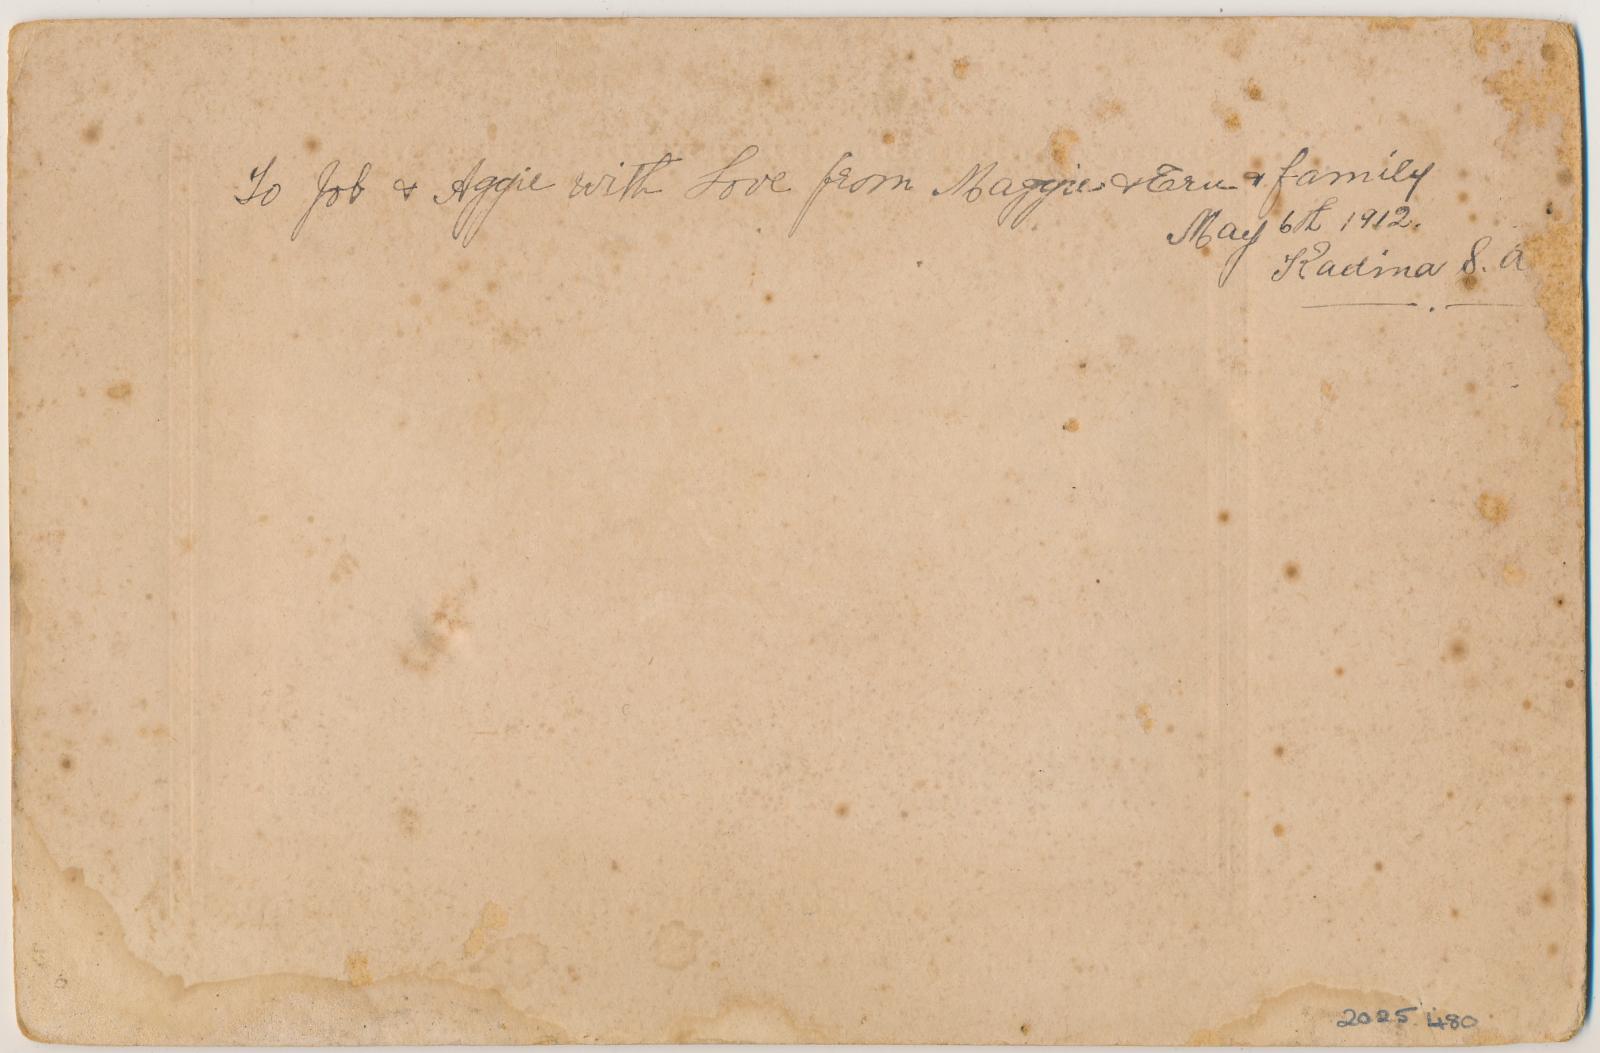 To Job & Aggie with Love from Maggie & Ern & family
May 6th 1912.
Kadina S. A
2025.480